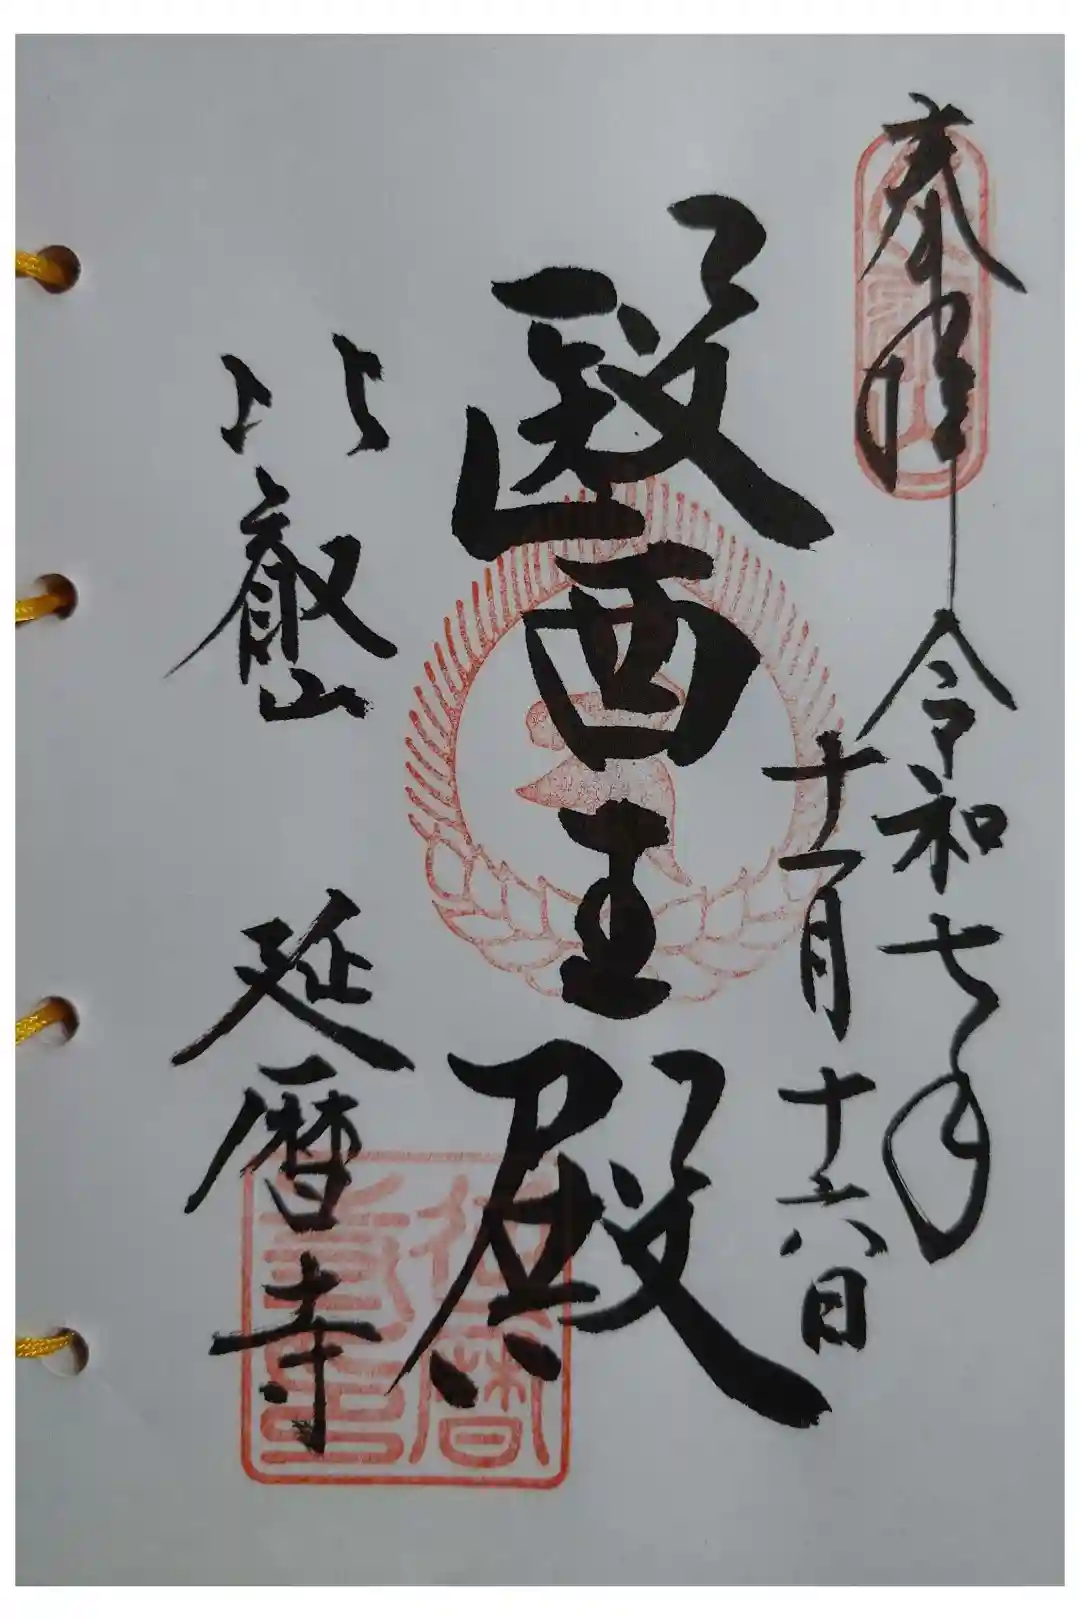 奉拝 令和七年
十一月十六日
醫王殿
比叡山 延暦寺
延暦寺印